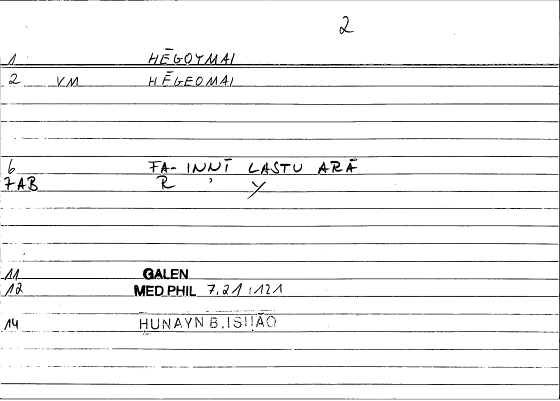 2
1 HĒGOYMAI
2 VM HĒGEOMAI
6 FA- INNĪ LASTU ARĀ
7AB R ʾ Y
11 GALEN
12 MED.PHIL 7.21:121
14 HUNAYN B.ISḤĀQ